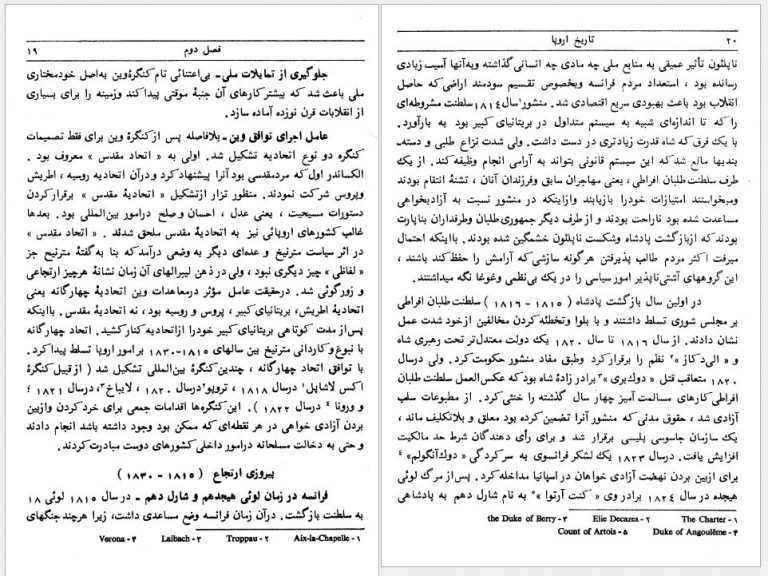 ۱۹ فصل دوم
جلوگیری از تمایلات ملی - بی‌اعتنائی تام کنگرهٔ وین به‌اصل خودمختاری
ملی باعث شد که بیشتر کارهای آن جنبهٔ موقتی پیدا کند وزمینه را برای بسیاری
از انقلابات قرن نوزده آماده سازد.
عامل اجرای توافق وین - بلافاصله پس از کنگرهٔ وین برای فقط تصمیمات
کنگره دو نوع اتحادیه تشکیل شد. اولی به « اتحاد مقدس » معروف بود .
الکساندر اول که مردمقدسی بود آنرا پیشنهاد کرد ودرآن اتحادیه روسیه ، اطریش
وپروس شرکت نمودند. منظور تزار ازتشکیل « اتحادیهٔ مقدس » برقرار کردن
دستورات مسیحیت ، یعنی عدل ، احسان و صلح درامور بین‌المللی بود. بعدها
غالب کشورهای اروپائی نیز به اتحادیهٔ مقدس ملحق شدند . « اتحاد مقدس »
در اثر سیاست مترنیخ و عده‌ای دیگر به وضعی درآمد که بنا به‌گفتهٔ مترنیخ جز
« لفاظی » چیز دیگری نبود ، ولی در ذهن لیبرالهای آن زمان نشانهٔ هرچیز ارتجاعی
و زورگوئی شد. درحقیقت عامل مؤثر درمعاهدات وین اتحادیهٔ چهارگانه یعنی
اتحادیهٔ اطریش، بریتانیای کبیر ، پروس و روسیه بود ، نه اتحادیهٔ مقدس. بااینکه
پس‌از مدت کوتاهی بریتانیای کبیر خودرا ازاتحادیه کنار کشید. اتحاد چهارگانه
با نبوغ و کاردانی مترنیخ بین سالهای ۱۸۱۵-۱۸۳۰ بر امور اروپا تسلط پیدا کرد.
با توافق اتحاد چهارگانه ، چندین کنگرهٔ بین‌المللی تشکیل شد ( از قبیل کنگرهٔ
اکس لاشاپل۱ درسال ۱۸۱۸ ، تروپو۲ درسال ۱۸۲۰ ، لایباخ۳، درسال ۱۸۲۱
و ورونا ۴ درسال ۱۸۲۲ ). این کنگره‌ها اقدامات جمعی برای خرد کردن وازبین
بردن آزادی خواهی در هر نقطه‌ای که ممکن بود وجود داشته باشد انجام دادند
و حتی به دخالت مسلحانه درامور داخلی کشورهای دوست مبادرت کردند.
پیروزی ارتجاع (۱۸۱۵ - ۱۸۳۰)
فرانسه در زمان لوئی هیجدهم و شارل دهم - در سال ۱۸۱۵ لوئی ۱۸
به سلطنت بازگشت. درآن زمان فرانسه وضع مساعدی داشت، زیرا هرچند جنگهای
۱- Aix-la-Chapelle ۲- Troppau ۳- Laibach ۴- Verona
۲۰ تاریخ اروپا
ناپلئون تأثیر عمیقی به منابع ملی چه مادی چه انسانی گذاشته وبه‌آنها آسیب زیادی
رسانده بود ، استعداد مردم فرانسه وبخصوص تقسیم سودمند اراضی که حاصل
انقلاب بود باعث بهبودی سریع اقتصادی شد. منشور۱سال ۱۸۱۴ سلطنت مشروطه‌ای
را که تا اندازه‌ای شبیه به سیستم متداول در بریتانیای کبیر بود به بارآورد.
با یک فرق که شاه قدرت زیادتری در دست داشت. ولی شدت نزاع طلبی و دسته-
بندیها مانع شد که این سیستم قانونی بتواند به آرامی انجام وظیفه کند. از یک
طرف سلطنت طلبان افراطی ، یعنی مهاجران سابق وفرزندان آنان ، تشنهٔ انتقام بودند
ومیخواستند امتیازات خودرا بازیابند وازاینکه در منشور نسبت به آزادیخواهی
مساعدت شده بود ناراحت بودند و از طرف دیگر جمهوری طلبان وطرفداران بناپارت
بودند که ازبازگشت پادشاه وشکست ناپلئون خشمگین شده بودند. بااینکه احتمال
میرفت اکثر مردم طالب پذیرفتن هرگونه سازشی که آرامش را حفظ کند باشند ،
این گروههای آشتی‌ناپذیر امور سیاسی را در یک بی‌نظمی وغوغا نگه میداشتند.
در اولین سال بازگشت پادشاه (۱۸۱۵ - ۱۸۱۶) سلطنت طلبان افراطی
بر مجلس شوری تسلط داشتند و با بلوا وتخطئه کردن مخالفین ازخود شدت عمل
نشان دادند. از سال ۱۸۱۶ تا سال ۱۸۲۰ یک دولت معتدل‌تر تحت رهبری شاه
و « الی دکاز »۲ نظم را برقرار کرد وطبق مفاد منشور حکومت کرد. ولی درسال
۱۸۲۰ متعاقب قتل « دوک‌بری »۳ برادر زادهٔ شاه بود که عکس‌العمل سلطنت طلبان
افراطی کارهای مسالمت آمیز چهار سال گذشته را خنثی کرد. از مطبوعات سلب
آزادی شد ، حقوق مدنی که منشور آنرا تضمین کرده بود معلق و بلاتکلیف ماند ،
یک سازمان جاسوسی پلیسی برقرار شد و برای رأی دهندگان شرط حد مالکیت
افزایش یافت. درسال ۱۸۲۳ یک لشکر فرانسوی به سرکردگی « دوک‌آنگولم» ۴
برای ازبین بردن نهضت آزادی خواهان در اسپانیا مداخله کرد. پس‌از مرگ لوئی
هیجده در سال ۱۸۲۴ برادر وی « کنت آرتوا » ۵ به نام شارل دهم به پادشاهی
۱- The Charter ۲- Elie Decazes ۳- the Duke of Berry
۴- Duke of Angoulême ۵- Count of Artois